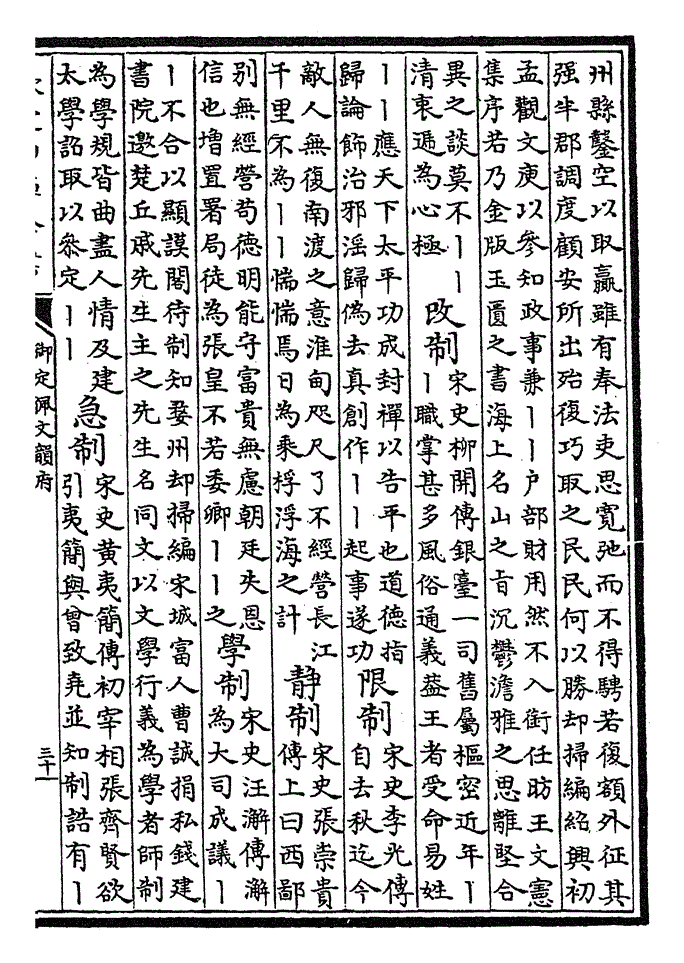 州縣鑿空以取贏雖有奉法吏思寬弛而不得騁若復額外征其
强半郡調度顧安所出殆復巧取之民民何以勝却掃編紹興初
孟觀文庾以參知政事兼丨丨户部財用然不入銜任昉王文憲
集序若乃金版玉匱之書海上名山之旨沉鬱澹雅之思離堅合
異之談莫不丨丨
清衷遞為心極
改制
宋史柳開傳銀臺一司舊屬樞密近年丨
丨職掌甚多風俗通義葢王者受命易姓
丨丨應天下太平功成封禪以告平也道德指
歸論飾治邪淫歸偽去真創作丨丨起事遂功
限制
宋史李光傳
自去秋迄今
敵人無復南渡之意淮甸咫尺了不經營長江
千里不為丨丨惴惴焉日為乘桴浮海之計
静制
宋史張崇貴
傳上曰西鄙
别無經營苟德明能守富貴無慮朝廷失恩
信也增置署局徒為張皇不若委卿丨丨之
學制
宋史汪澥傳澥
為大司成議丨
丨不合以顯謨閣待制知婺州却掃編宋城富人曹誠捐私錢建
書院邀楚丘戚先生主之先生名同文以文學行義為學者師制
為學規皆曲盡人情及建
太學詔取以叅定丨丨
急制
宋史黄夷簡傳初宰相張齊賢欲
引夷簡與曾致堯並知制誥有丨
御定佩文韻府
三十一